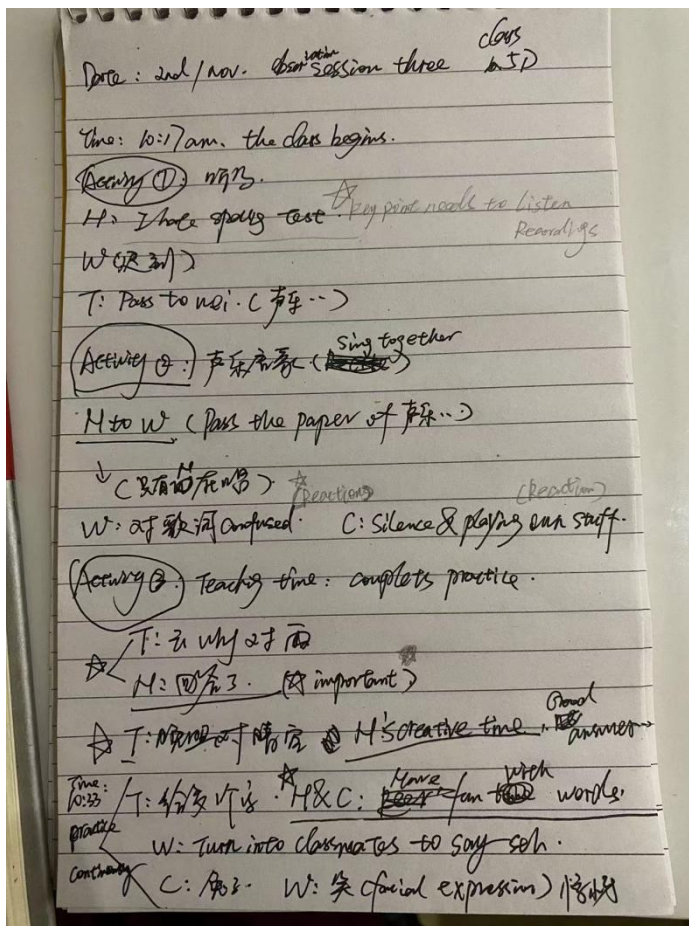 Date: 2nd/Nov. observation session three class 5D
Time: 10:17am. the class begins.
Activity ①: 听写.
M: I hate spelling test. ☆ Key point needs to listen
Recordings
W(迟到)
T: Pass to wei. (声乐..)
Activity ②: 声乐启蒙 (sing together)
M to W (Pass the paper of 声乐..)
↓ (只有M在唱) ☆ (Reaction) (Reaction)
W: 对歌词confused. C: Silence & playing own stuff.
Activity ③: Teaching time: couplets practice.
T: 云 why 对 雨
☆ M: 回答了. (☆ important)
☆ T: 晚照对晴空 M's creative time. Good answer→
Time: 10:33 T: 给多个字. ☆ M&C: Have fun with words.
practice W: Turn into classmates to say sth.
continuing C: W: 笑 (facial expression)